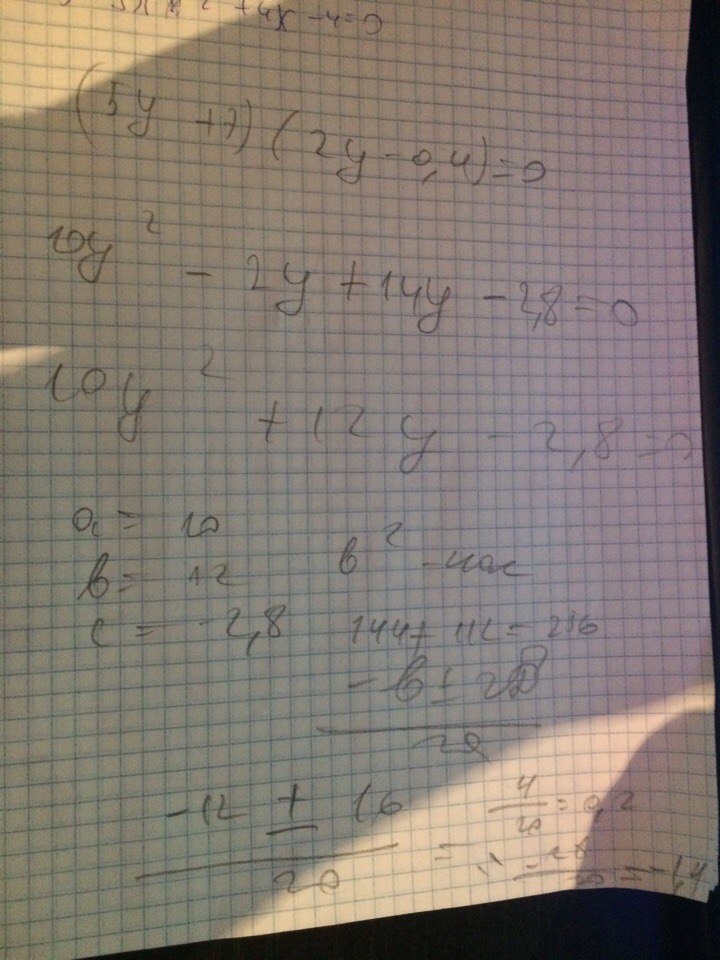 +4x-4=0
(5y+7)(2y-0,4)=0
10y²-2y+14y-2,8=0
10y²+12y-2,8=0
a= 10
b= 12 b²-4ac
c= -2,8 144+112=256
-b±√D
2a
-12±16 4/20=0,2
20 = -28/20=-1,4